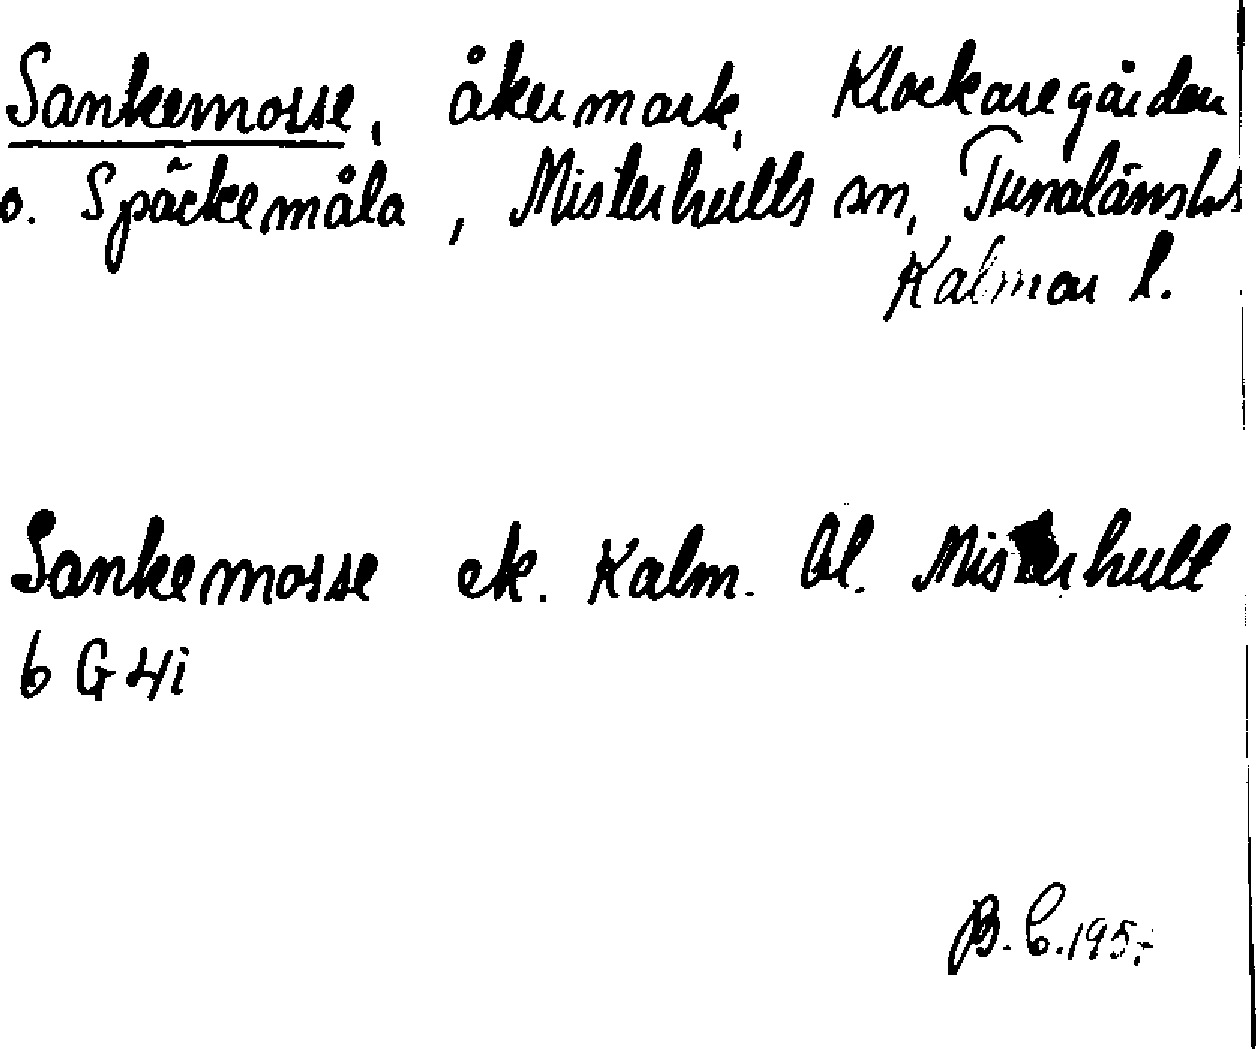 Sankemosse, åkermark, Klockaregården
o. Späckemåla, Misterhults sn, Tunaläns hd
Kalmar l.
Sankemosse ek. Kalm. bl. Misterhult
6 G 4i
B. C. 195